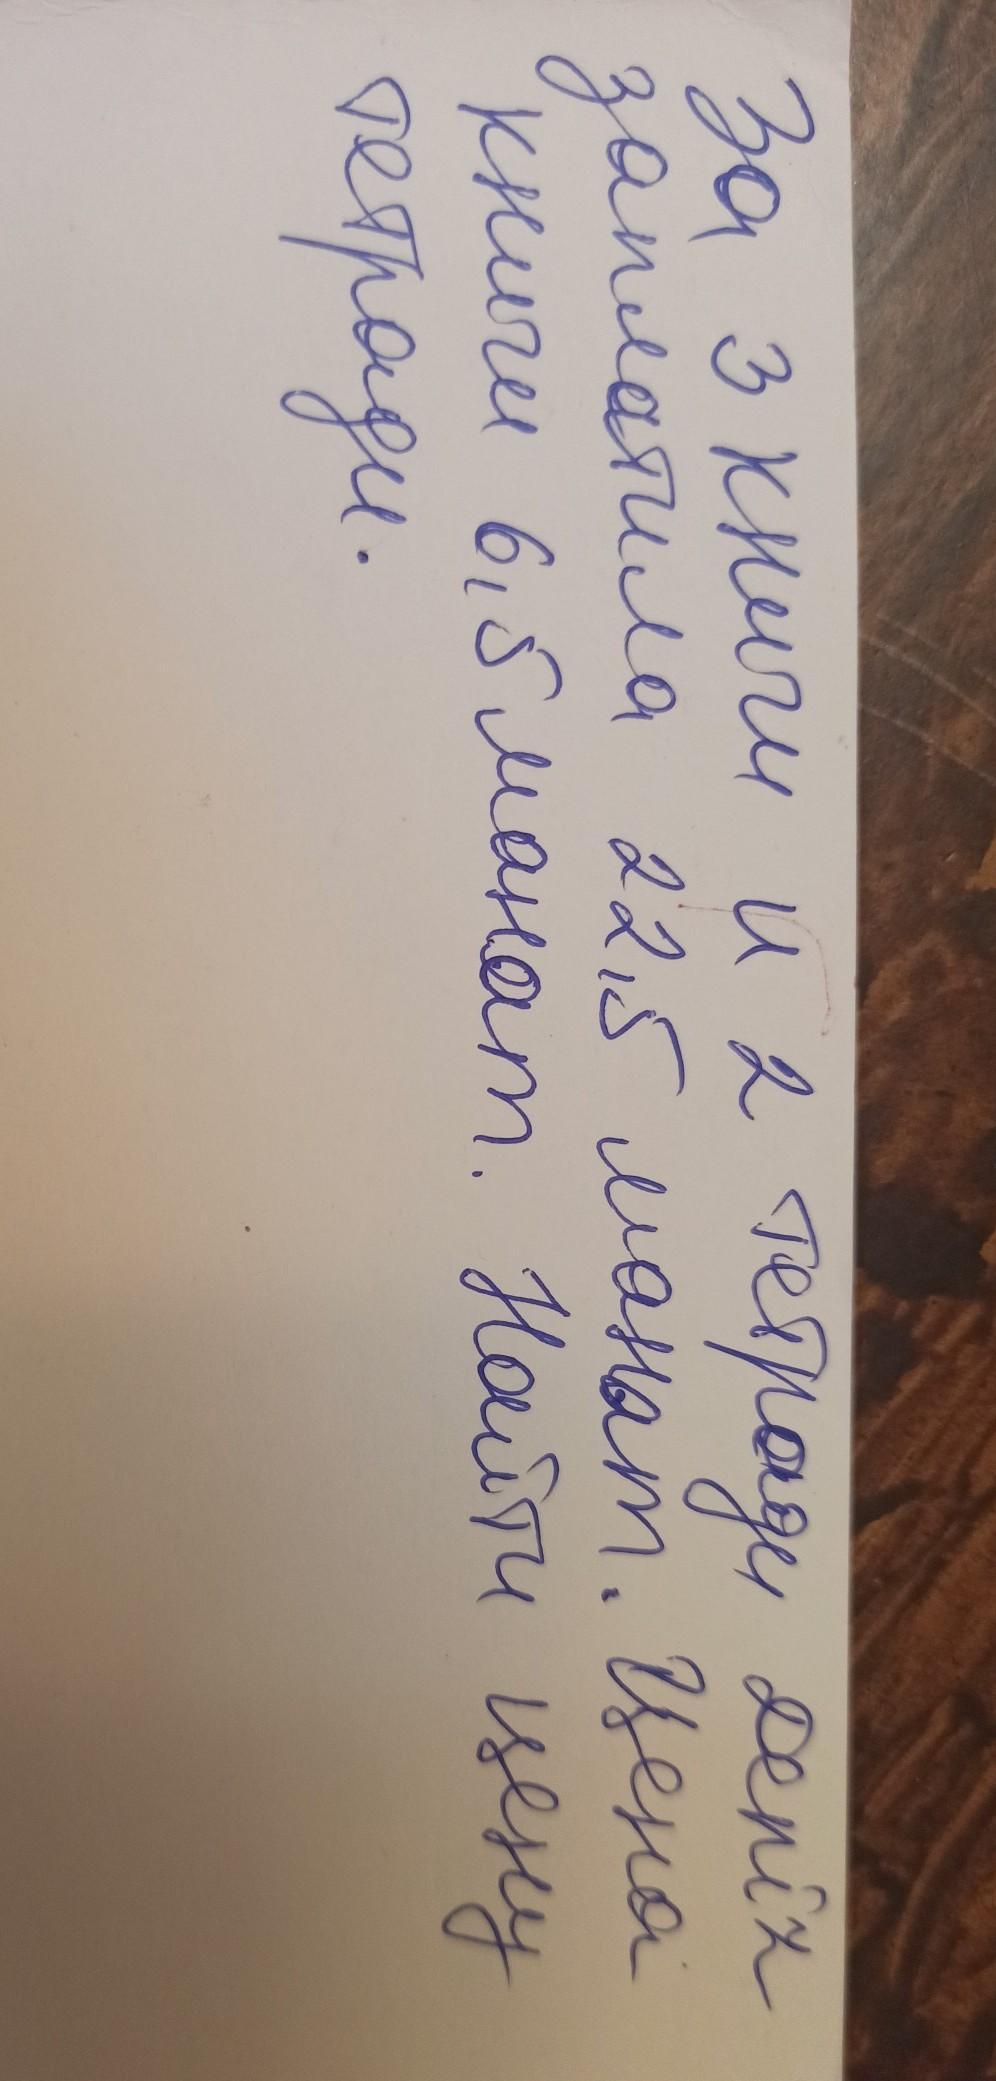 За 3 книги и 2 тетради Дeniz
заплатила 22,5 манат. Цена
книги 6,5 манат. Найти цену
тетради.